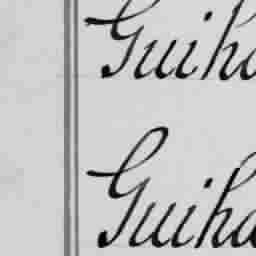 Guiha
Guiha